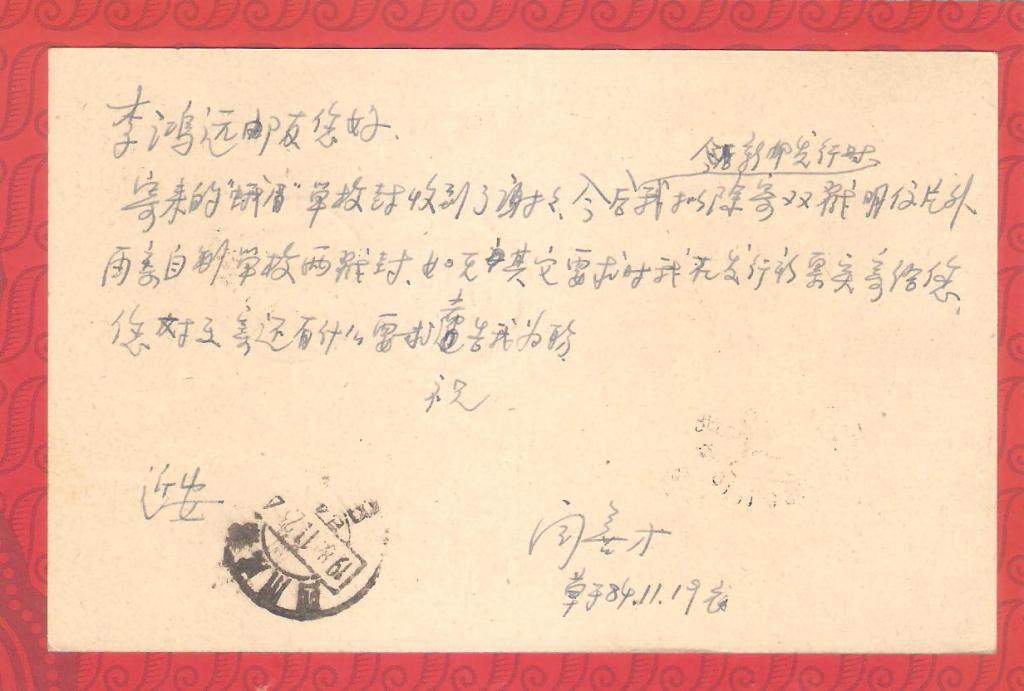 李鸿远邮友您好.
今后新邮发行时
寄来的"峨眉"单枚封收到了谢谢、今后我拟除寄双戳明信片外
再寄自制单枚两戳封.如无其它要求时我在发行新票实寄给您.
您对交寄还有什么要求请告我为盼
祝
近安
闫善才
草于84.11.19夜
1984.11.23